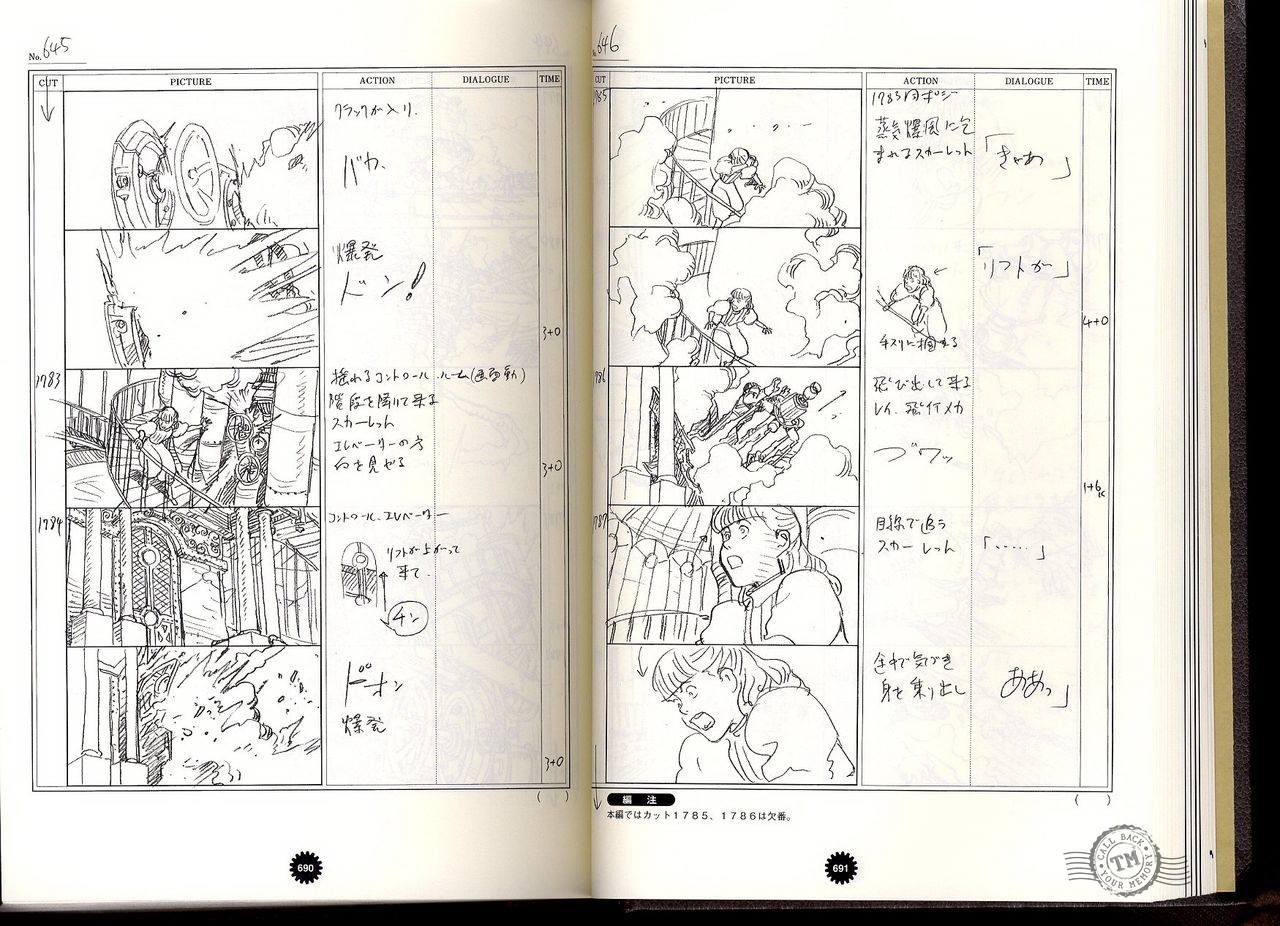 No. 645
CUT PICTURE ACTION DIALOGUE TIME
クラックが入り、
バカ
爆発
ドン!
3+0
1783
揺れるコントロール・ルーム(画面動)
階段を降りて来る
スカーレット
エレベーターの方
向を見せる
3+0
1784
コントロール・エレベーター
リフトが上がって
来て
チン
ドオン
爆発
3+0
( )
690
646
CUT PICTURE ACTION DIALOGUE TIME
1785
1783同ポジ
蒸気爆風に包
まれるスカーレット
「きゃあ」
「リフトが」
手スリに掴まる
4+0
1786
飛び出して来る
レイ、飛行メカ
ブワッ
1+6
1787
目線で追う
スカーレット
「……」
途中で気づき
身を乗り出し
ああっ」
( )
編注
本編ではカット1785、1786は欠番。
691
CALL BACK
TM
YOUR MEMORY